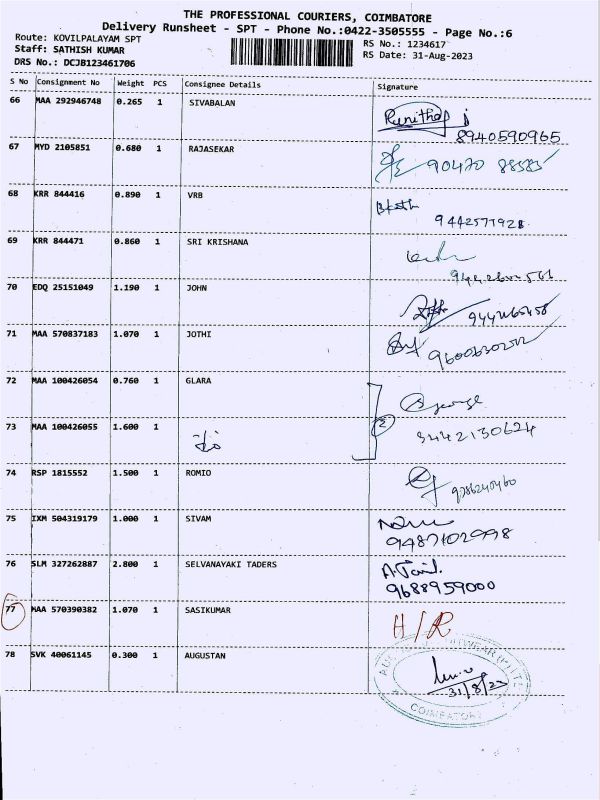 THE PROFESSIONAL COURIERS, COIMBATORE
Delivery Runsheet - SPT - Phone No.:0422-3505555 - Page No.:6
Route: KOVILPALAYAM SPT
Staff: SATHISH KUMAR
DRS No.: DCJB123461706
RS No.: 1234617
RS Date: 31-Aug-2023
S No Consignment No Weight PCS Consignee Details Signature
66 MAA 292946748 0.265 1 SIVABALAN
8940590965
67 MYD 2105851 0.680 1 RAJASEKAR
68 KRR 844416 0.890 1 VRB
9442577928
69 KRR 844471 0.860 1 SRI KRISHANA
70 EDQ 25151049 1.190 1 JOHN
71 MAA 570837183 1.070 1 JOTHI
72 MAA 100426054 0.760 1 GLARA
73 MAA 100426055 1.600 1
2
74 RSP 1815552 1.500 1 ROMIO
75 IXM 504319179 1.000 1 SIVAM
9487102998
76 SLM 327262887 2.800 1 SELVANAYAKI TADERS
9688959000
77 MAA 570390382 1.070 1 SASIKUMAR H/R
78 SVK 40061145 0.300 1 AUGUSTAN
31/8/23
COIMBATORE